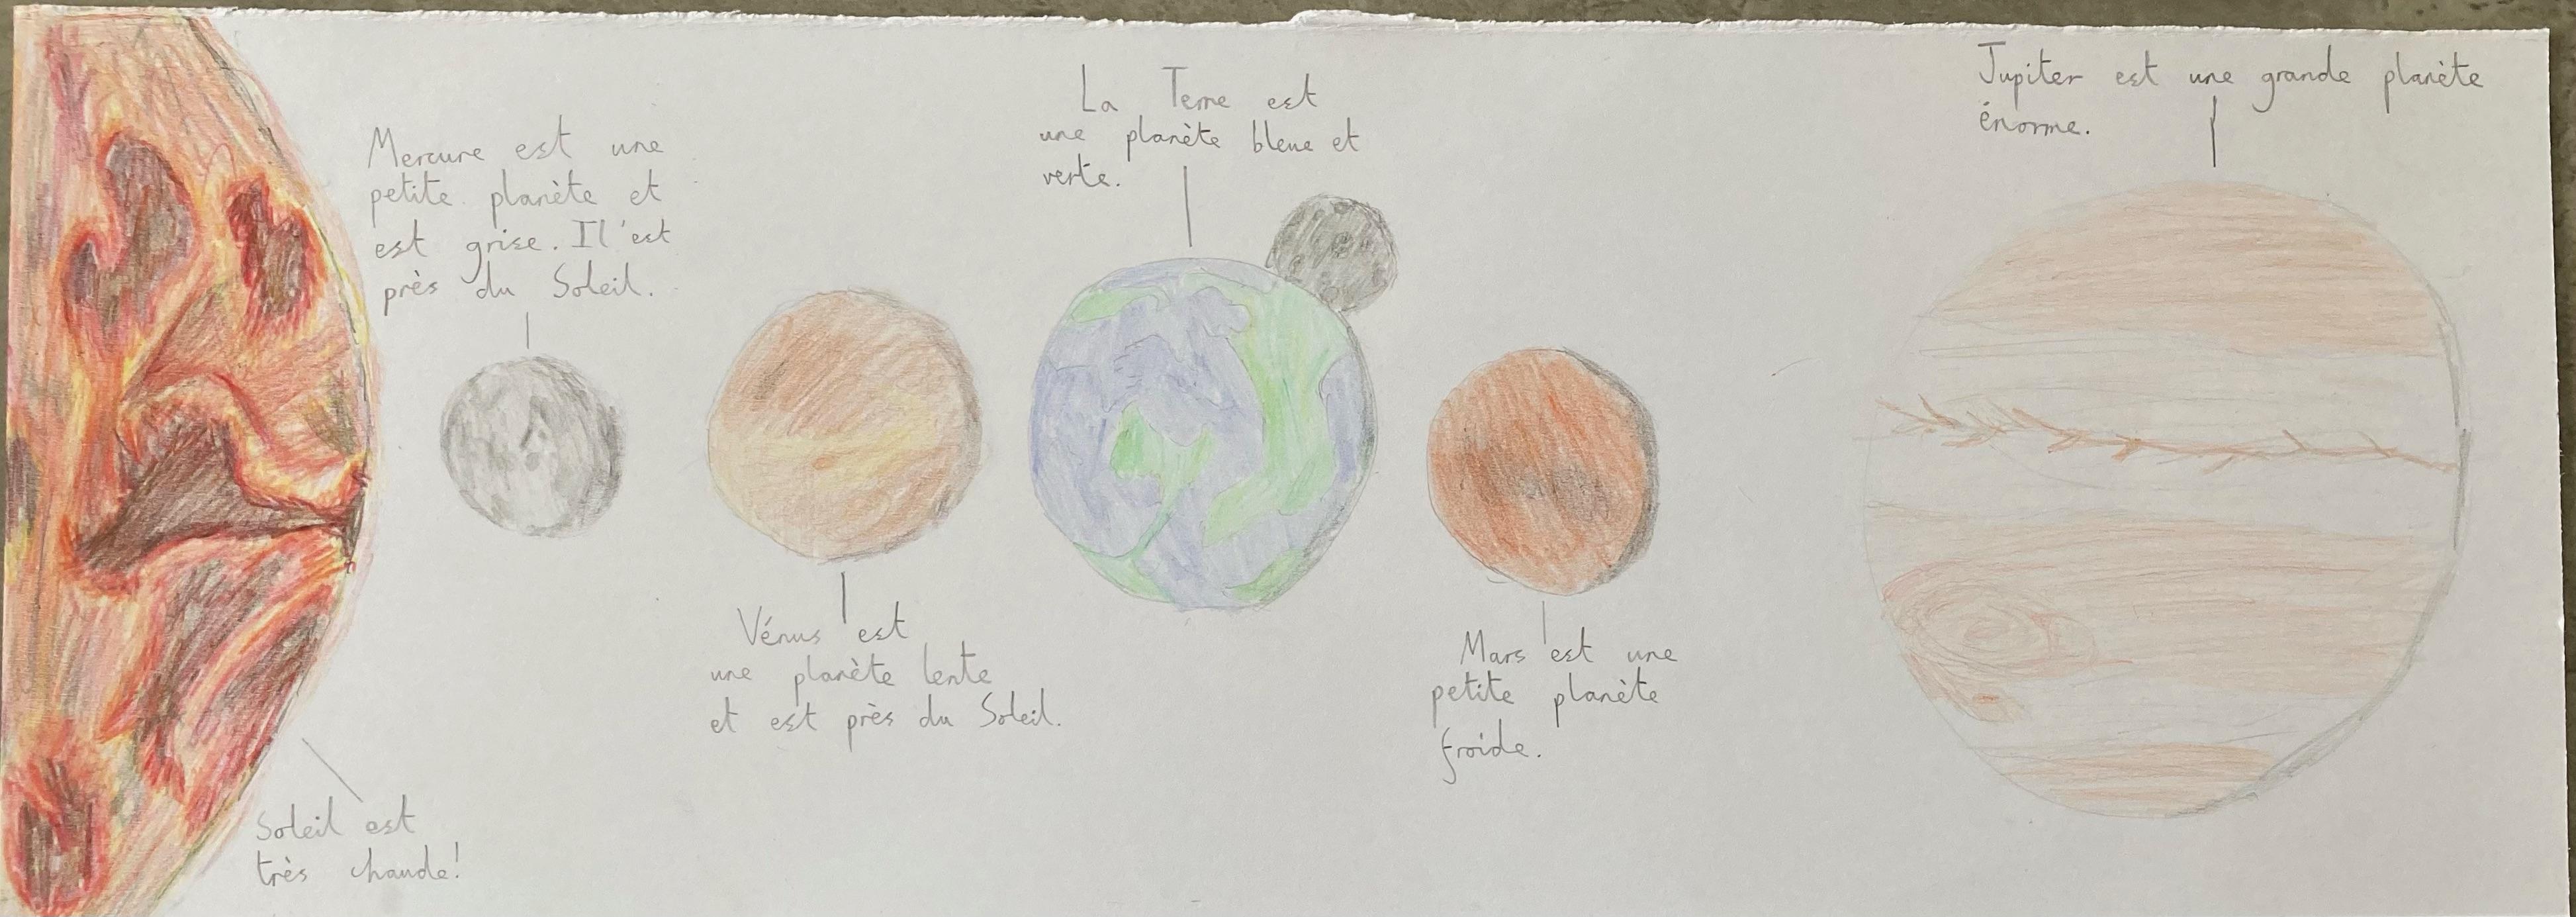 Mercure est une
petite planète et
est grise. Il'est
près du Soleil.
La Terre est
une planète bleue et
verte.
Jupiter est une grande planète
énorme.
Vénus est
une planète lente
et est près du Soleil.
Mars est une
petite planète
froide.
Soleil est
très chaude!